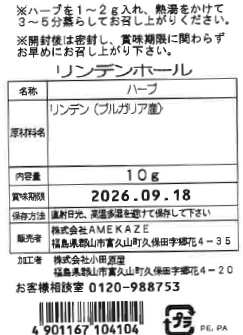 ※ハーブを1〜2g入れ、熱湯をかけて
3〜5分蒸らしてお召し上がりください。
※開封後は密封し、賞味期限に関わらず
お早めにお召し上がり下さい。
リンデンホール
名称 ハーブ
原材料名 リンデン(ブルガリア産)
内容量 10g
賞味期限 2026.09.18
保存方法 直射日光、高温多湿を避けて保存して下さい
販売者 株式会社AMEKAZE
福島県郡山市富久山町久保田字郷花4-35
加工者 株式会社小田原屋
福島県郡山市富久山町久保田字郷花4-20
お客様相談室 0120-988753
4 901167 104104
プラ
PE, PA